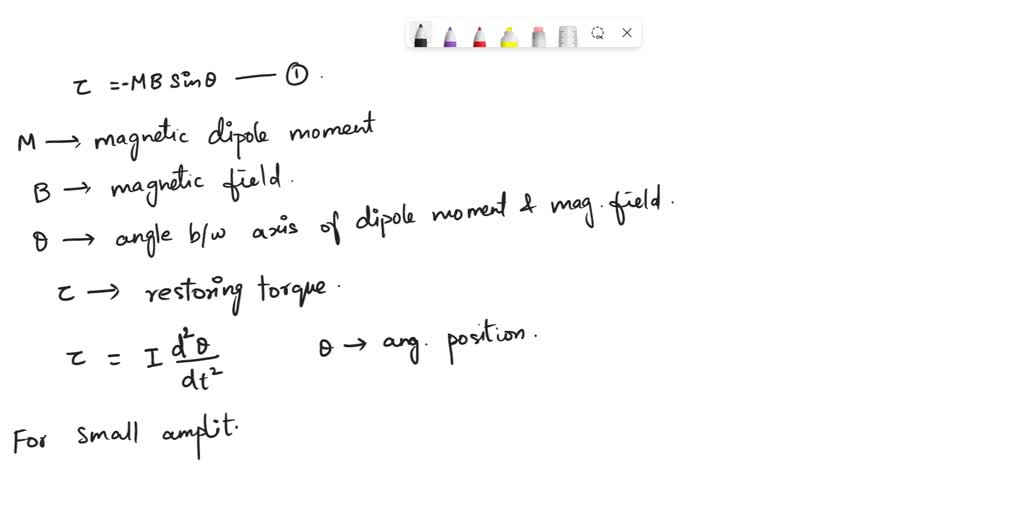 τ = -MB sinθ — ①.
M → magnetic dipole moment
B → magnetic field.
θ → angle b/w axis of dipole moment & mag. field.
τ → restoring torque.
τ = I d²θ/dt² θ → ang. position.
For small amplit.